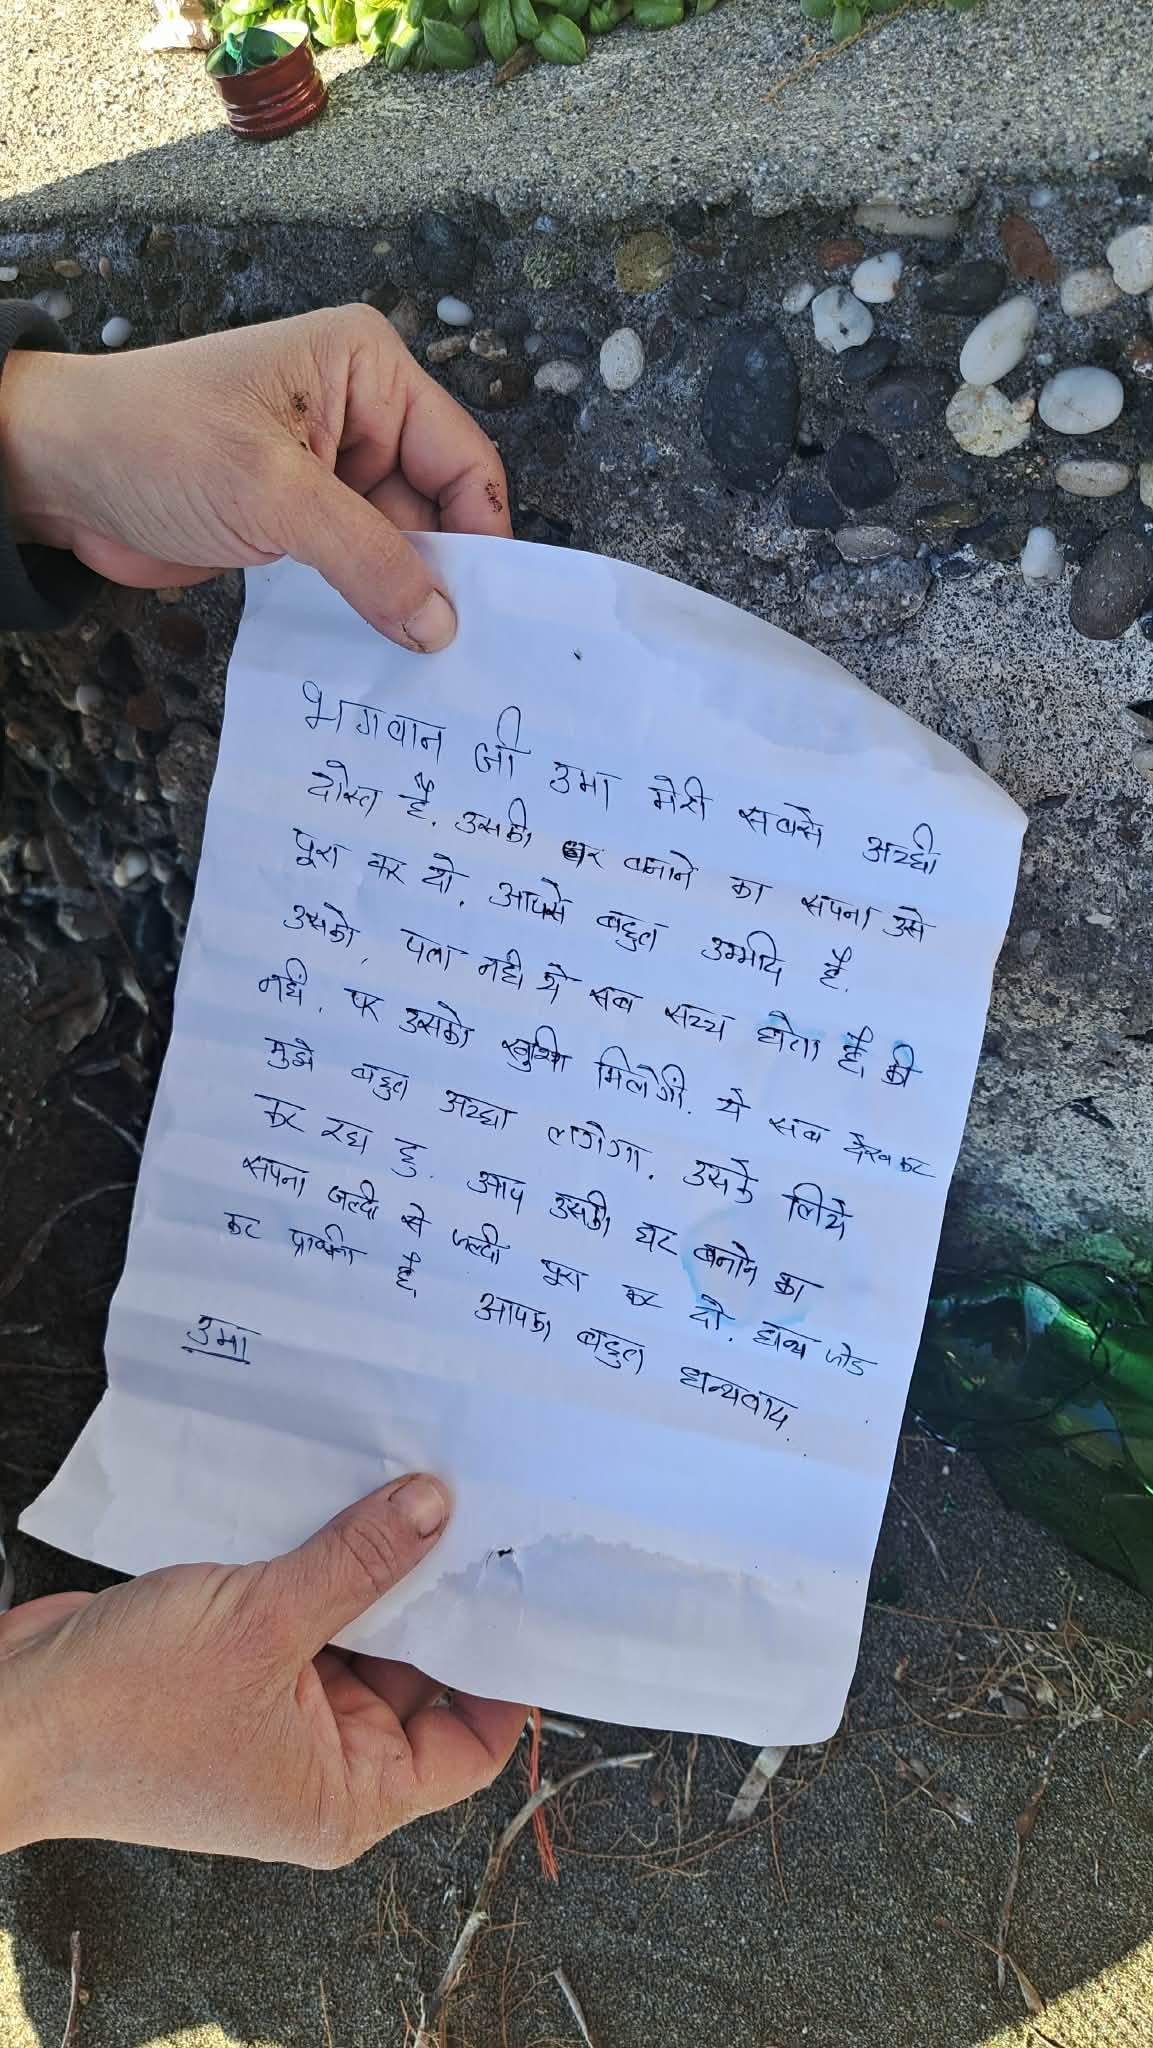 भगवान जी उमा मेरी सबसे अच्छी
दोस्त है. उसकी घर बनाने का सपना उसे
पूरा कर दो. आपसे बहुत उम्मीद है.
उसको, पता नही ये सब सच्च होता है, की
नहीं. पर उसको खुशि मिलेगी. ये सब देख कर
मुझे बहुत अच्छा लगेगा. उसके लिये
कर रहा हु. आप उसकी घर बनाने का
सपना जल्दी से जल्दी पूरा कर दो. हाथ जोड
कर प्रार्थना है, आपका बहुत धन्यवाद.
उमा